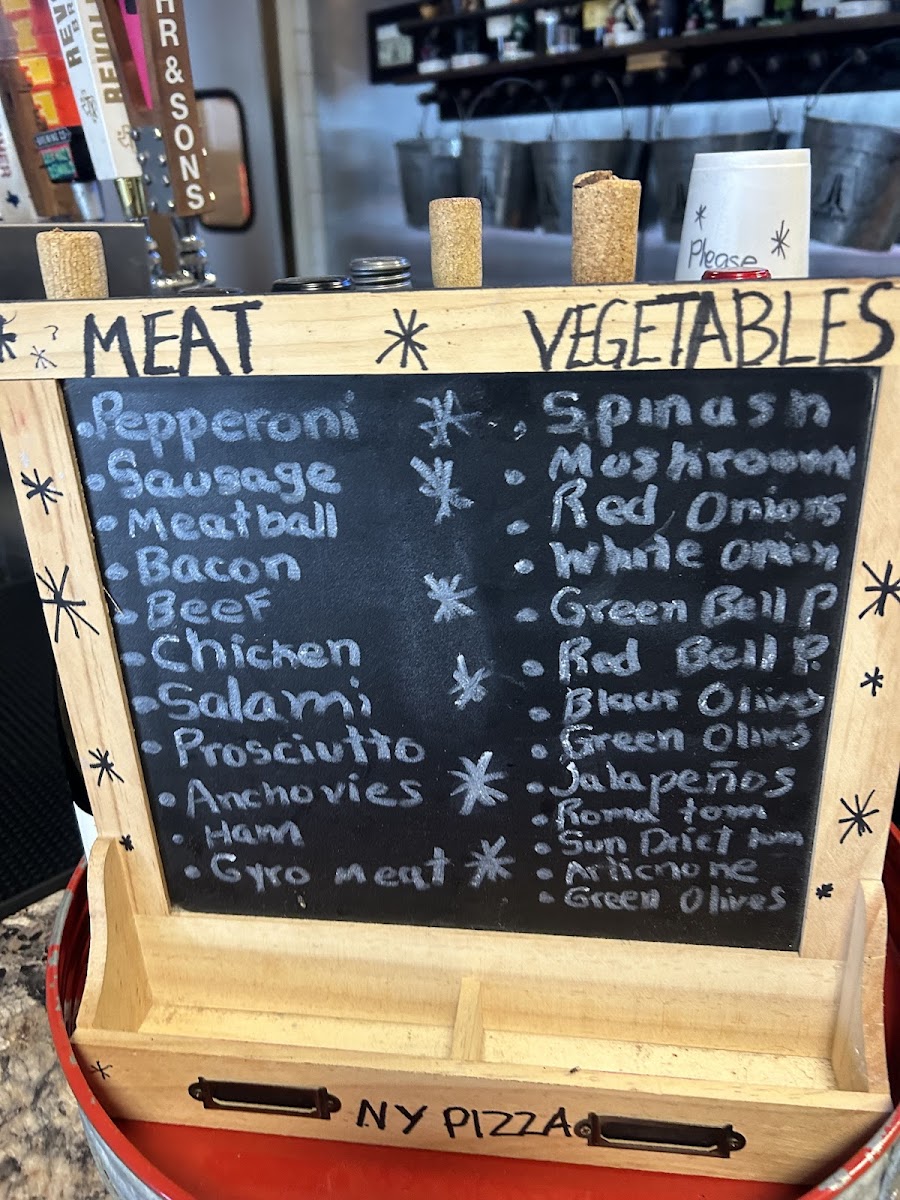 HR & SONS
REVO
Please
MEAT
VEGETABLES
Pepperoni
Sausage
Meatball
Bacon
Beef
Chicken
Salami
Prosciutto
Anchovies
Ham
Gyro meat
Spinash
Mushrooms
Red Onions
White onion
Green Bell P
Red Bell P.
Black Olives
Green Olives
Jalapeños
Roma tom
Sun Driet tom
Artichone
Green Olives
NY PIZZA